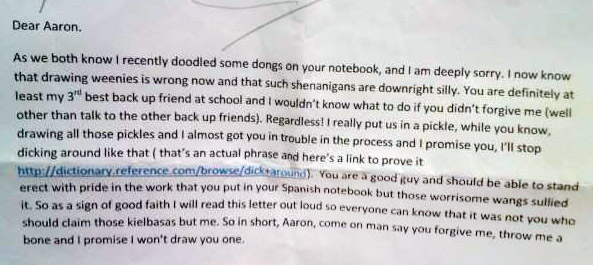 Dear Aaron.
As we both know I recently doodled some dongs on your notebook, and I am deeply sorry. I now know
that drawing weenies is wrong now and that such shenanigans are downright silly. You are definitely at
least my 3rd best back up friend at school and I wouldn't know what to do if you didn't forgive me (well
other than talk to the other back up friends). Regardless! I really put us in a pickle, while you know,
drawing all those pickles and I almost got you in trouble in the process and I promise you, I'll stop
dicking around like that ( that's an actual phrase and here's a link to prove it
http://dictionary.reference.com/browse/dick+around). You are a good guy and should be able to stand
erect with pride in the work that you put in your Spanish notebook but those worrisome wangs sullied
it. So as a sign of good faith I will read this letter out loud so everyone can know that it was not you who
should claim those kielbasas but me. So in short, Aaron, come on man say you forgive me, throw me a
bone and I promise I won't draw you one.